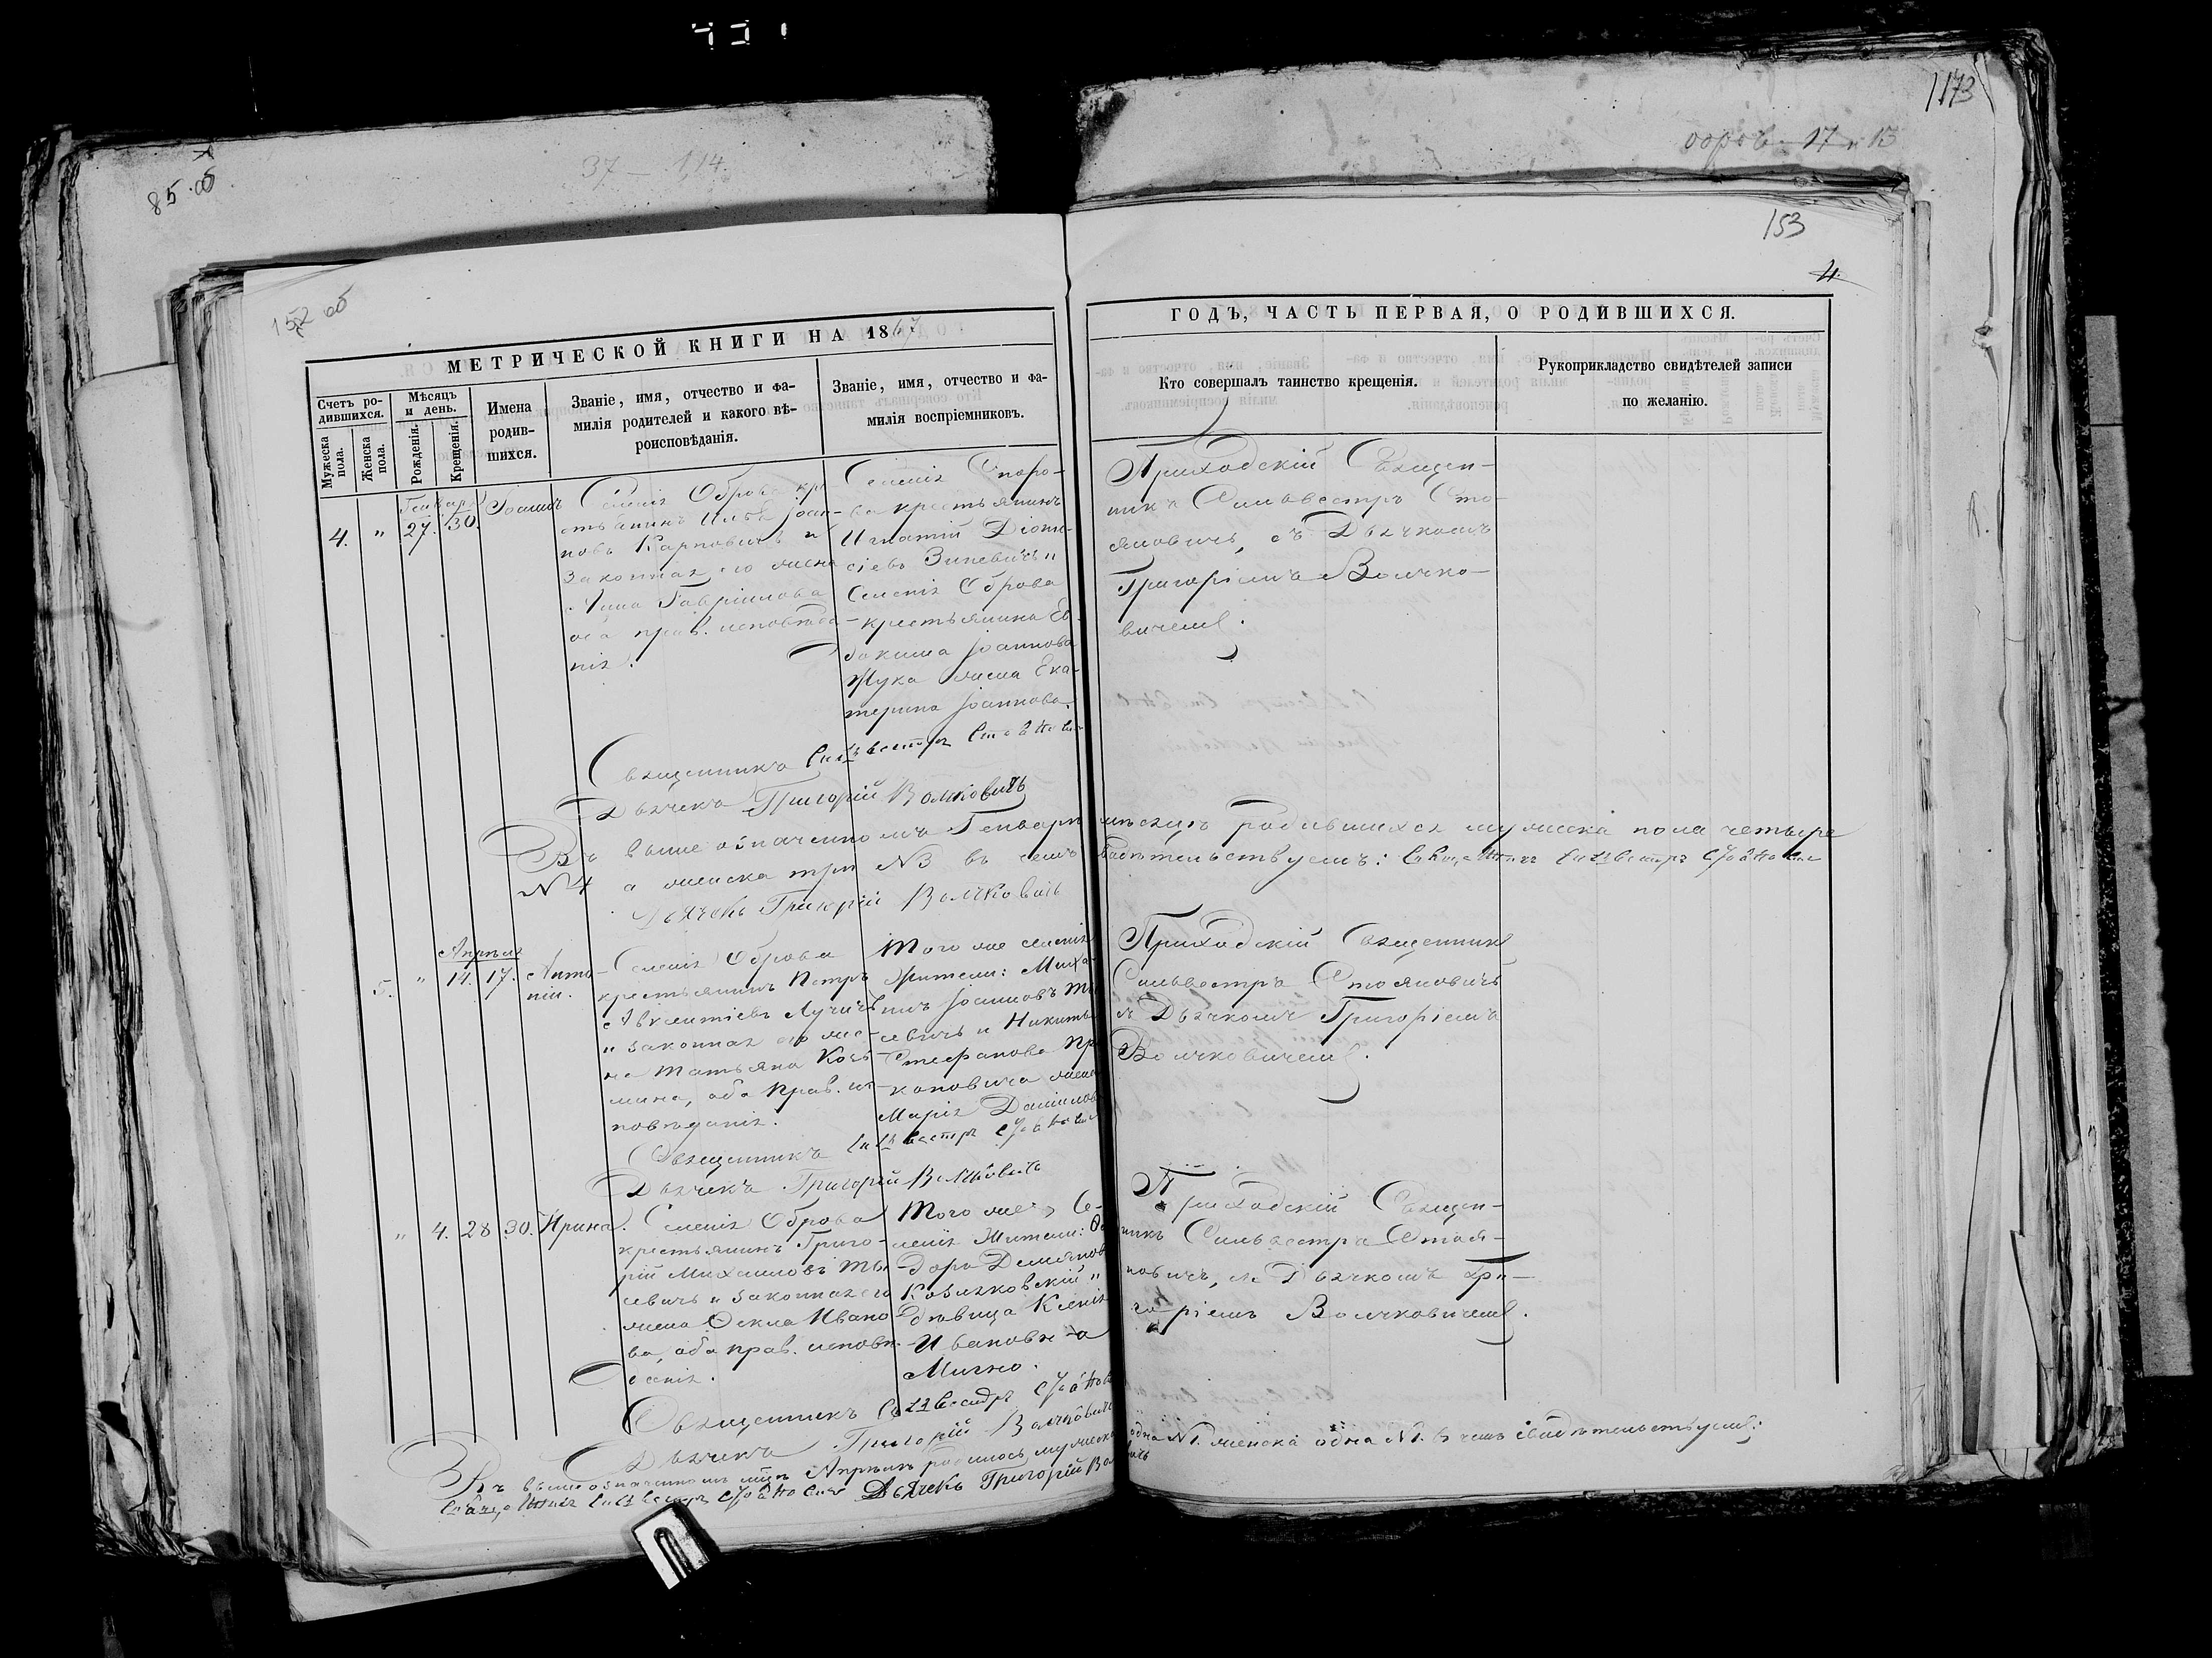 1173
153
4.
85 об
37 – 114.
152 об
МЕТРИЧЕСКОЙ КНИГИ НА 1867
Счетъ ро-
дившихся.
Мужеска пола.
Женска пола.
Мѣсяцъ
и день.
Рожденія.
Крещенія.
Имена
родив-
шихся.
Званіе, имя, отчество и фа-
милія родителей и какого вѣ-
роисповѣданія.
Званіе, имя, отчество и фа-
милія воспріемниковъ.
ГОДЪ, ЧАСТЬ ПЕРВАЯ, О РОДИВШИХСЯ.
Кто совершалъ таинство крещенія.
Рукоприкладство свидѣтелей записи
по желанію.
Генваря
4. " 27. 30. Іоаннъ
Селенія Оброва кре-
стьянинъ Илья Іоан-
новъ Карповичъ и
законная его жена
Анна Гавріилова
оба прав. исповѣда-
нія.
Селенія Споро-
ва крестьянинъ
Игнатій Діони-
сіевъ Зиневичъ и
Селенія Оброва
крестьянина Ев-
докима Іоаннова
Жука жена Ека-
терина Іоаннова.
Приходскій Священ-
никъ Сильвестръ Сто-
яновичъ, съ Дьячкомъ
Григоріемъ Волчко-
вичемъ.
Священникъ Сильвестръ Стояновичъ
Дьячекъ Григорій Волчковичъ
Въ вышеозначенномъ Генварѣ мѣсяцѣ родившихся мужеска пола четыре
№ 4 а женска три №3 въ чемъ свидѣтельствуемъ: Священникъ Сильвестръ Стояновичъ
Дьячекъ Григорій Волчковичъ
Апрѣля
5. " 14. 17. Анто-
ній.
Селенія Оброва
крестьянинъ Петръ
Авксентіевъ Лучичъ
и законная его же-
на Татьяна Козь-
мина, оба прав. ис-
повѣданія.
Того же селенія
жители: Миха-
илъ Іоанновъ Ты-
севичъ и Никиты
Стефанова Пр
коповича жена
Марія Даніилов
Приходскій Священникъ
Сильвестръ Стояновичъ
съ Дьячкомъ Григоріемъ
Волчковичемъ.
Священникъ Сильвестръ Стояновичъ
Дьячекъ Григорій Волчковичъ
" 4. 28 30. Ирина.
Селенія Оброва
крестьянинъ Григо-
рій Михаиловъ Ты-
севичъ и законная его
жена Ѳекла Ивано-
ва, оба прав. исповѣ-
данія.
Того же Се-
ленія жители: Ѳе
доръ Демяновъ
Козляковскій и
дѣвица Ксенія
Ивановна
Мично.
Приходскій Священ-
никъ Сильвестръ Стоя-
новичъ, съ Дьячкомъ Гри-
горіемъ Волчковичемъ.
Священникъ Сильвестръ Стояновичъ
Дьячекъ Григорій Волчковичъ
Въ вышеозначенномъ мцѣ Апрѣлѣ родилось мужеска одна №1. женска одна №1. въ чемъ свидѣтельствуемъ:
Священникъ Сильвестръ Стояновичъ Дьячекъ Григорій Волчковичъ